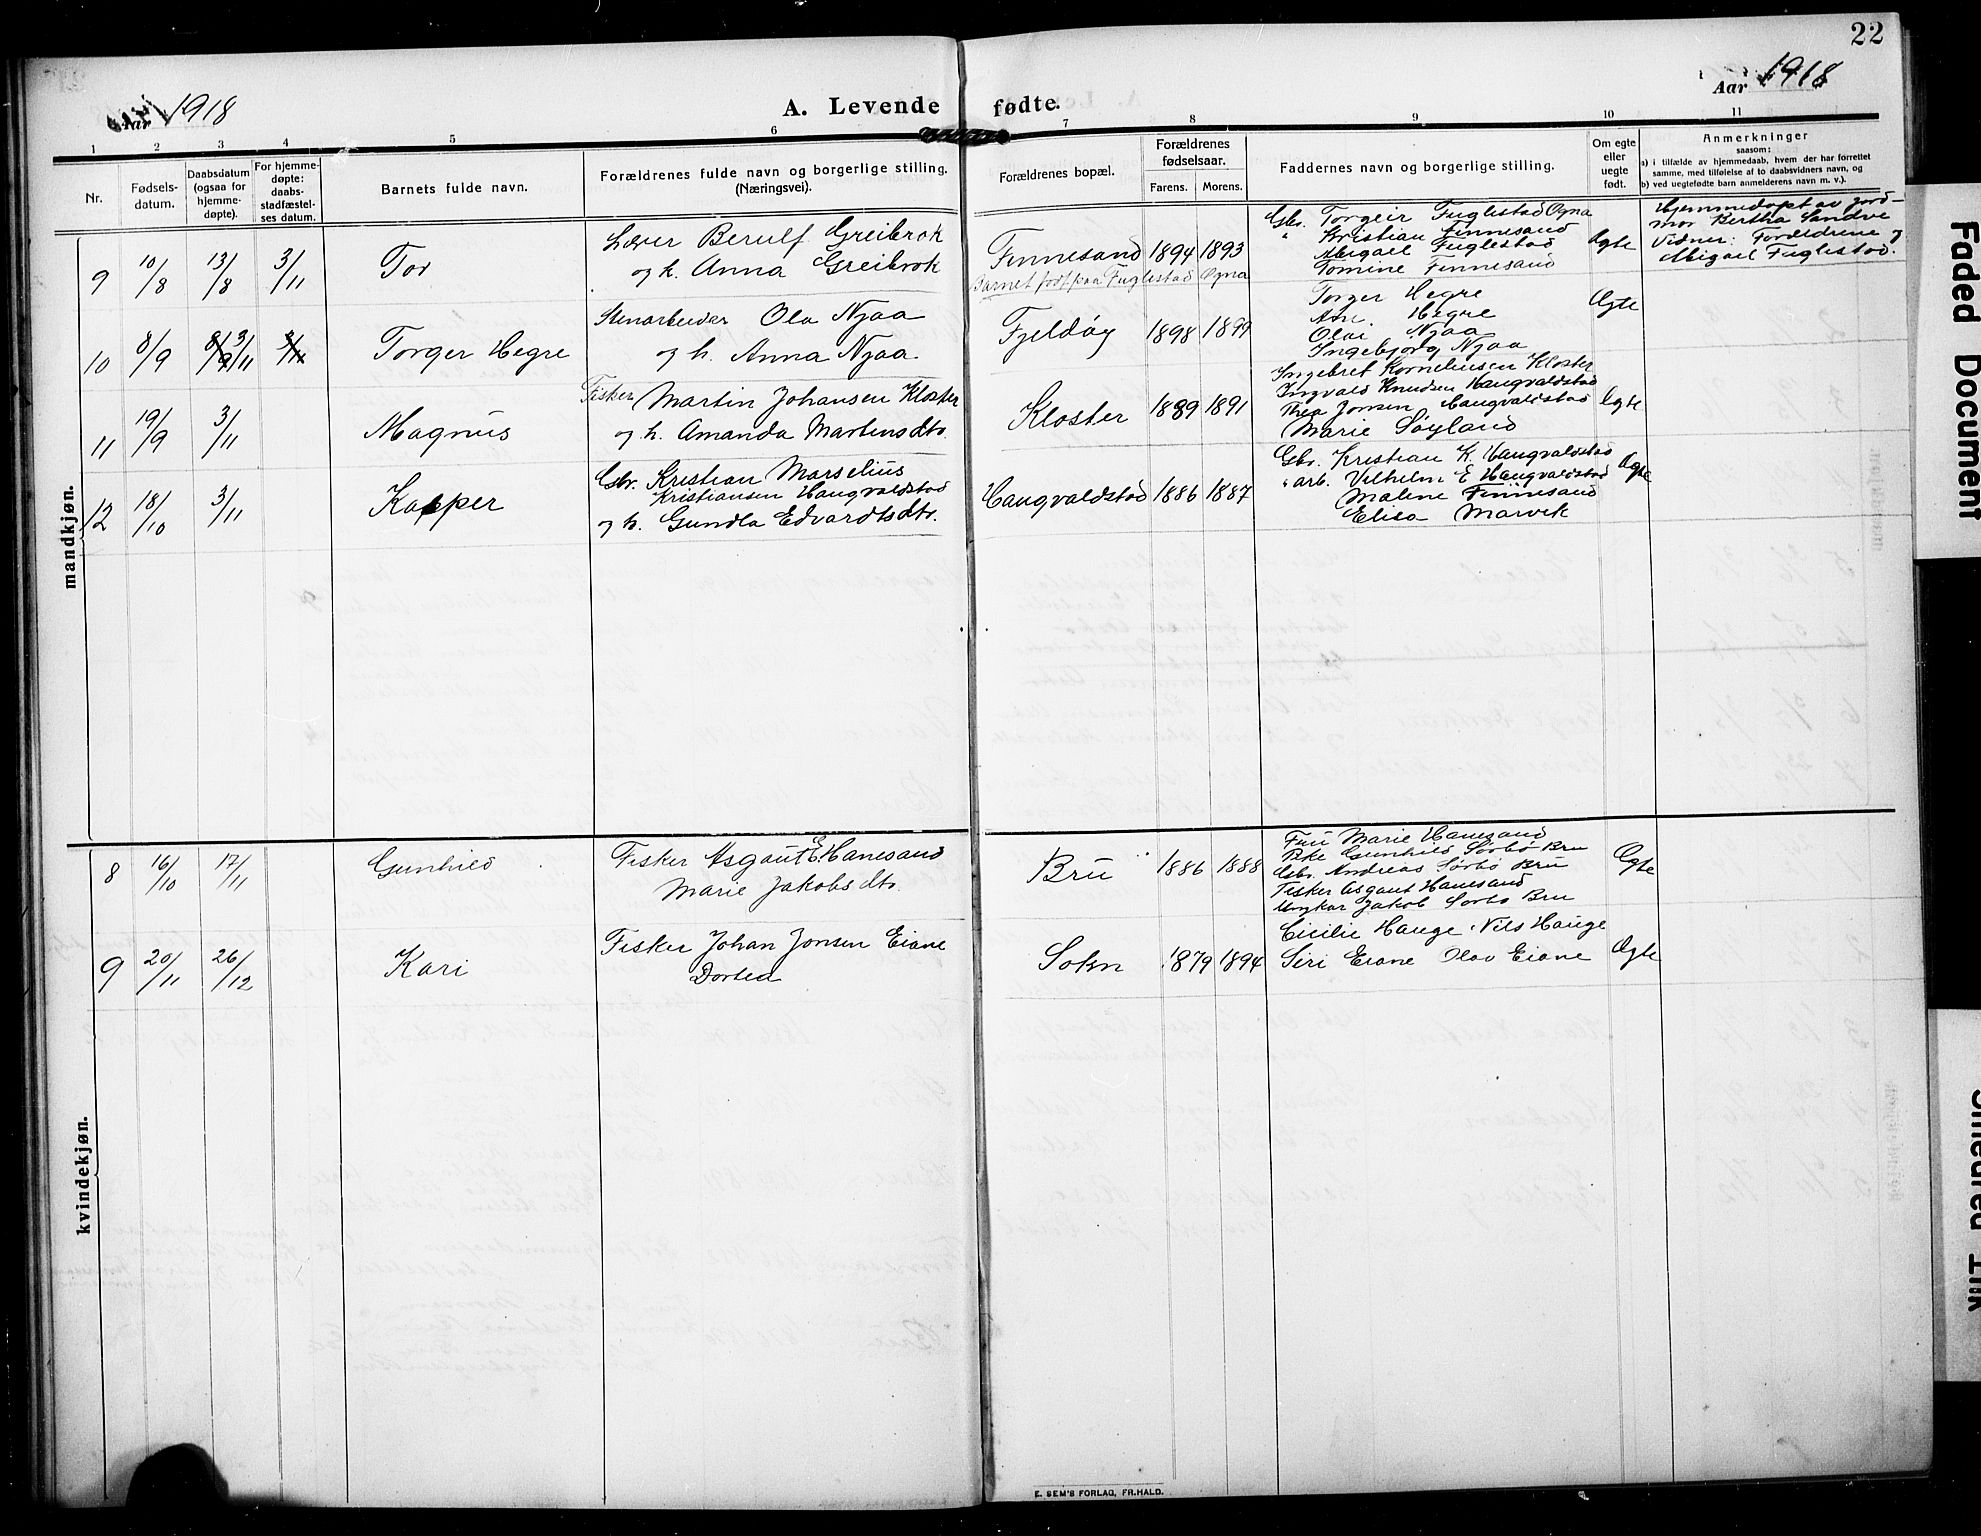 22
Aar 1918
A. Levende fødte.
Aar 1918
1 2 3 4 5 6 7 8 9 10 11
Nr.
Fødsels-
datum.
Daabsdatum
(ogsaa for
hjemme-
døpte).
For hjemme-
døpte:
daabs-
stadfæstel-
ses datum.
Barnets fulde navn.
Forældrenes fulde navn og borgerlige stilling.
(Næringsvei).
Forældrenes bopæl.
Forældrenes
fødselsaar.
Farens. Morens.
Faddernes navn og borgerlige stilling.
Om egte
eller
uegte
født.
Anmerkninger
saasom:
a) i tilfælde av hjemmedaab, hvem der har forrettet
samme, med tilføielse af to daabsvidners navn, og
b) ved uegtefødte barn anmelderens navn m. v.).
mandkjøn.
9 10/8 13/8 3/11 Tor
Lærer Berulf Greibrok
og h. Anna Greibrok
Finnesand 1894 1893
Barnet født paa Fuglestad Ogna
Gbr. Torgeir Fuglestad Ogna
" Kristian Finnesand
Abigael Fuglestad
Tomine Finnesand
Ægte
Hjemmedøpt av jord-
mor Bertha Sandve
Vidner: Forældrene og
Abigael Fuglestad.
10 8/9 8/9 3/11 3/11 Torger Hegre
Stenarbeider Ola Njaa
og h. Anna Njaa
Fjeldøy 1898 1899
Torger Hegre
Ane Hegre
Olai Njaa
Ingebjørg Njaa
Ægte
11 19/9 3/11 Magnus
Fisker Martin Johansen Kloster
og h. Amanda Martensdtr.
Kloster 1889 1891
Ingebret Korneliussen Kloster
Ingvald Knudsen Haugvaldstad
Thea Jonsen Haugvaldstad
Marie Søyland
Ægte
12 18/10 3/11 Kasper
Gbr. Kristian Marselius
Kristiansen Haugvaldstad
og h. Gundla Edvardtsdtr.
Haugvaldstad 1886 1887
Gbr. Kristian K. Haugvaldstad
" arb. Vilhelm E Haugvaldstad
Maline Finnesand
Elisa Marvik
Ægte
kvindekjøn.
8 16/10 17/11 Gunhild
Fisker Asgaut E. Hanesand
Marie Jakobsdtr.
Bru 1886 1888
Fru Marie Hanesand
Pike Gunhild Sørbø Bru
Gbr. Andreas Sørbø Bru
Fisker Asgaut Hanesand
Ungkar Jakob Sørbø Bru
Ægte
9 20/11 26/12 Kari
Fisker Johan Jonsen Eiane
Dortea
Sokn 1879 1894
Cicilie Hauge. Nils Hauge
Siri Eiane Olav Eiane
Ægte
E. SEM'S FORLAG, FR.HALD.
Faded Document
Smeared Ink